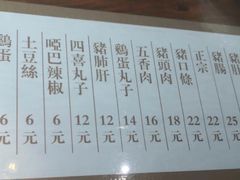 鷄蛋 6
土豆絲 6 元
啞巴辣椒 6 元
四喜丸子 12 元
豬肺肝 12 元
鷄蛋丸子 14 元
五香肉 16 元
豬頭肉 18 元
豬口條 22 元
正宗 22
豬腸 22 元
豬肚 25